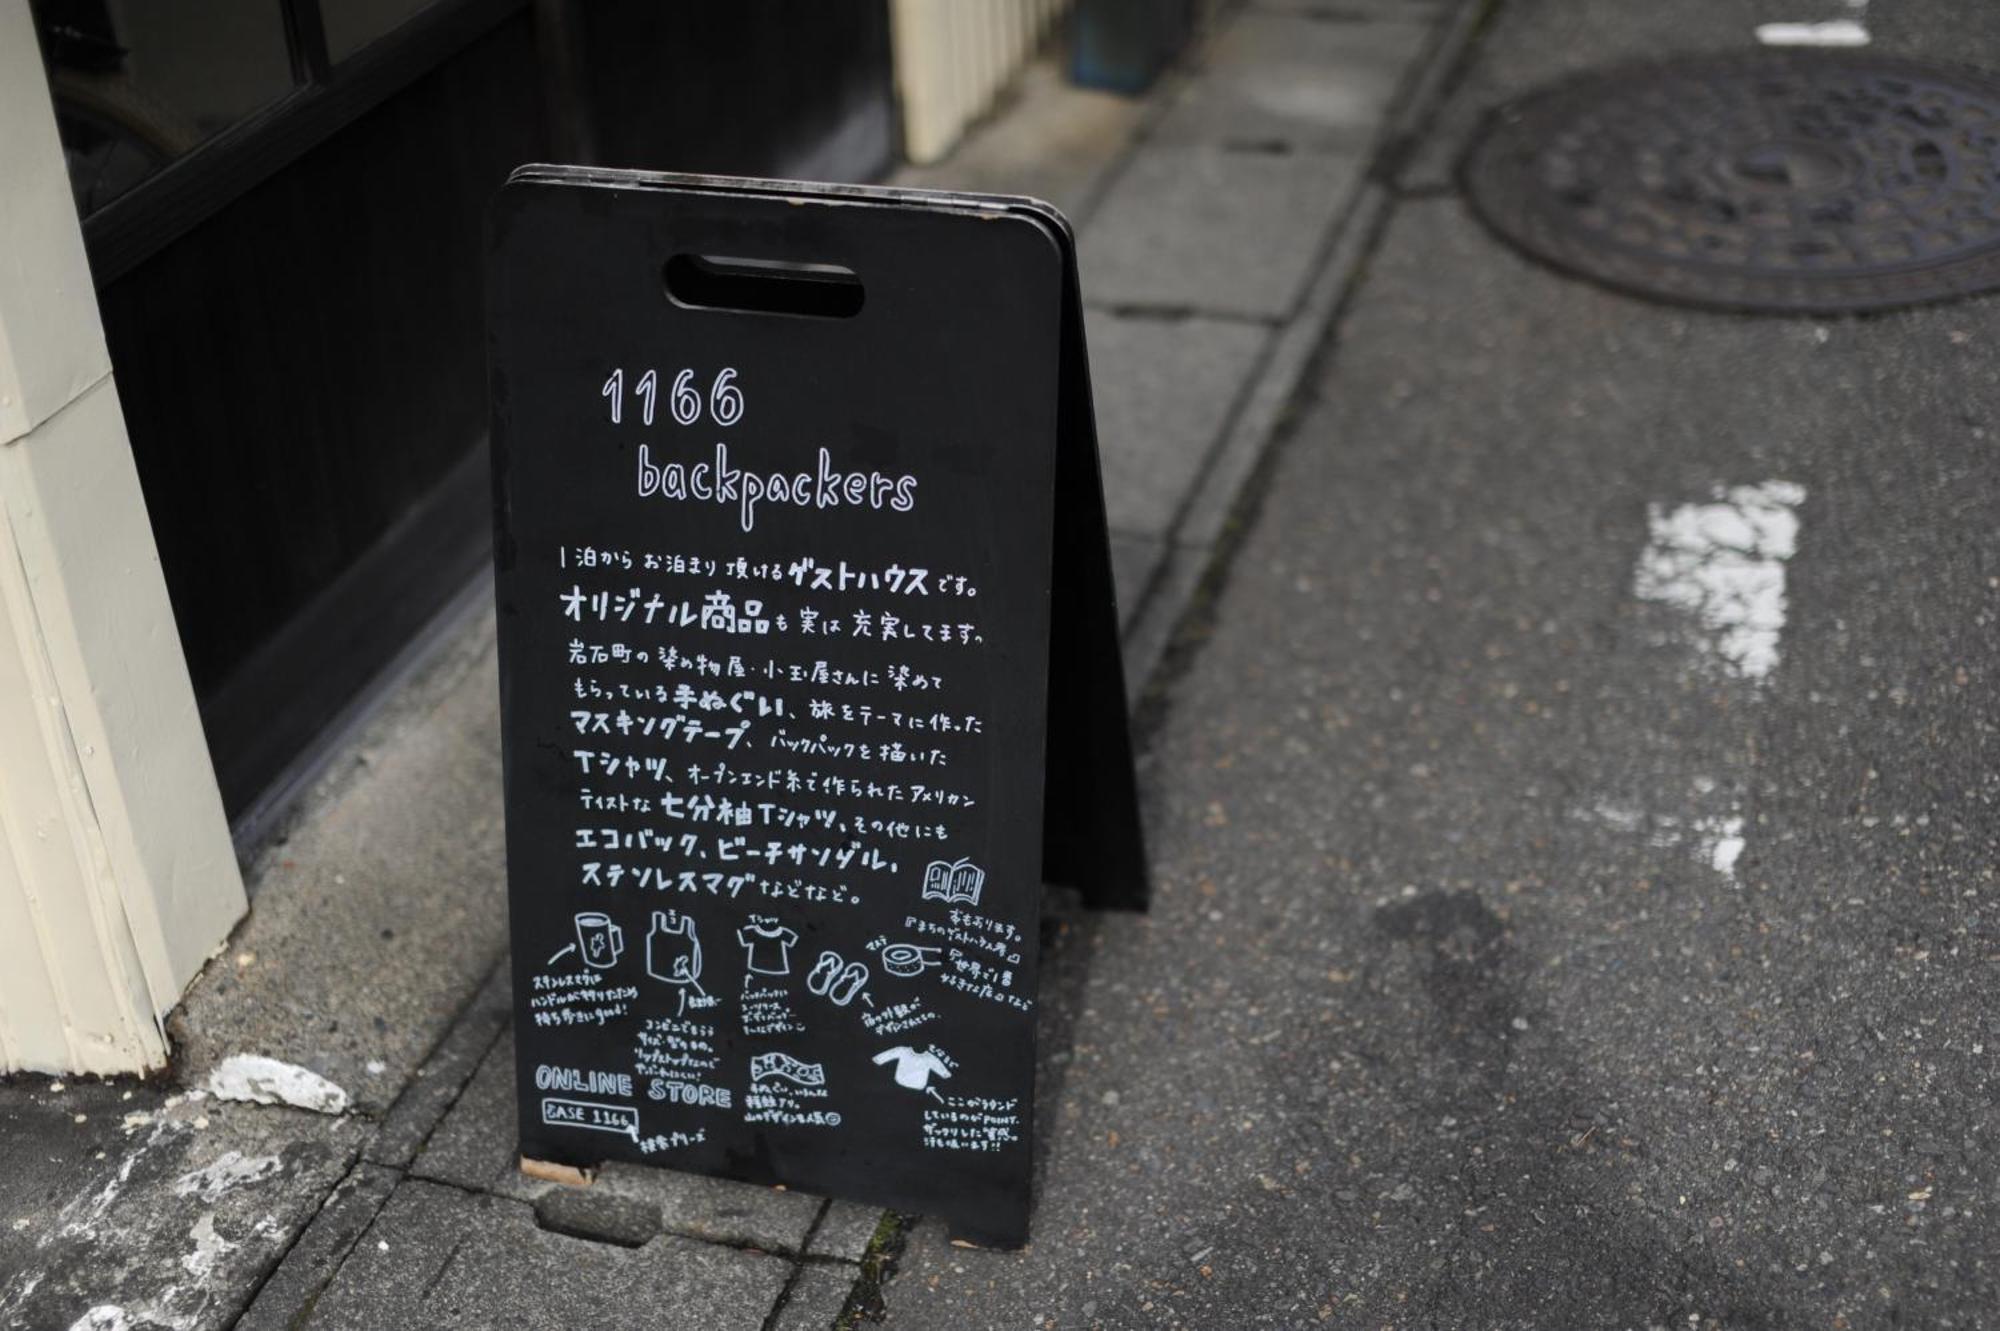 1166
backpackers
1泊から お泊まり頂けるゲストハウスです。
オリジナル商品も実は充実してます。
岩石町の染め物屋・小玉屋さんに染めて
もらっている手ぬぐい、旅をテーマに作った
マスキングテープ、バックパックを描いた
Tシャツ、オープンエンド糸で作られたアメリカン
テイストな七分袖Tシャツ、その他にも
エコバック、ビーチサンダル、
ステンレスマグなどなど。
本もあります。
『まちのゲストハウス考』
『世界で1番
ステンレスマグは
ハンドルが
持ち歩きにgood!
エコ
コンビニでもらう
Tシャツ
バックパックに
マステ
宿の外観が
デザインされてるの。
ONLINE STORE
BASE 1166
検索プリーズ
手ぬぐい、いろんな
種類アリ。
山のデザインも人気
ここがラウンド
しているのがPOINT.
ザックリした質感。
汗も吸います!!